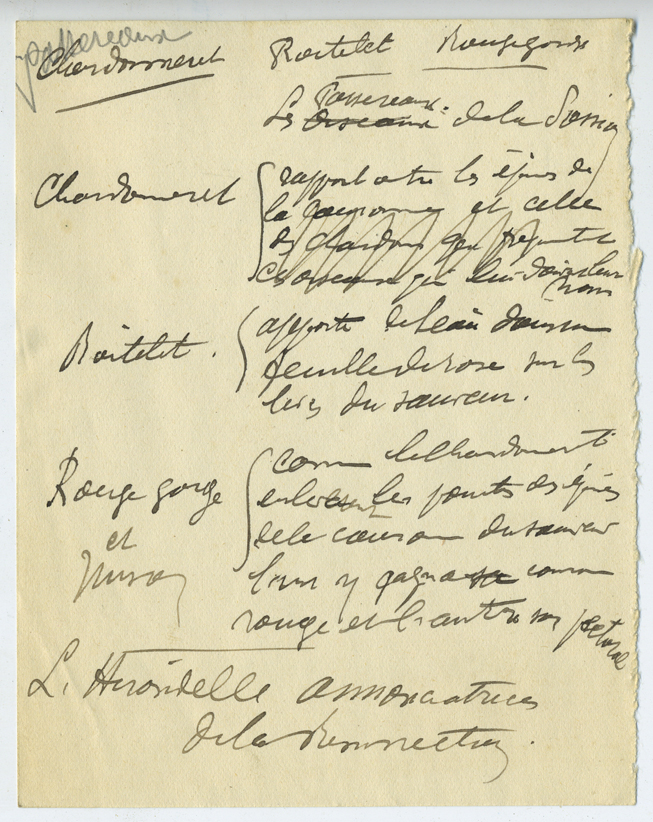 passereaux
Chardonneret Roitelet Rougegorge
Les Oiseaux Passereaux de la Passion
Chardonneret rapport entre les épines de
la couronne et celle
des chardons que fréquente
ces oiseaux qui leur doivent leur
nom
Roitelet. apporte de l'eau dans une
feuille de rose sur les
lèvres du sauveur.
Rouge gorge comme le Chardonneret
enlèvent les pointes des épines
et de la couronne du sauveur
l'un y gagna sa couronne
rouge et l'autre son
L'Hirondelle annonciatrice
de la Résurrection.